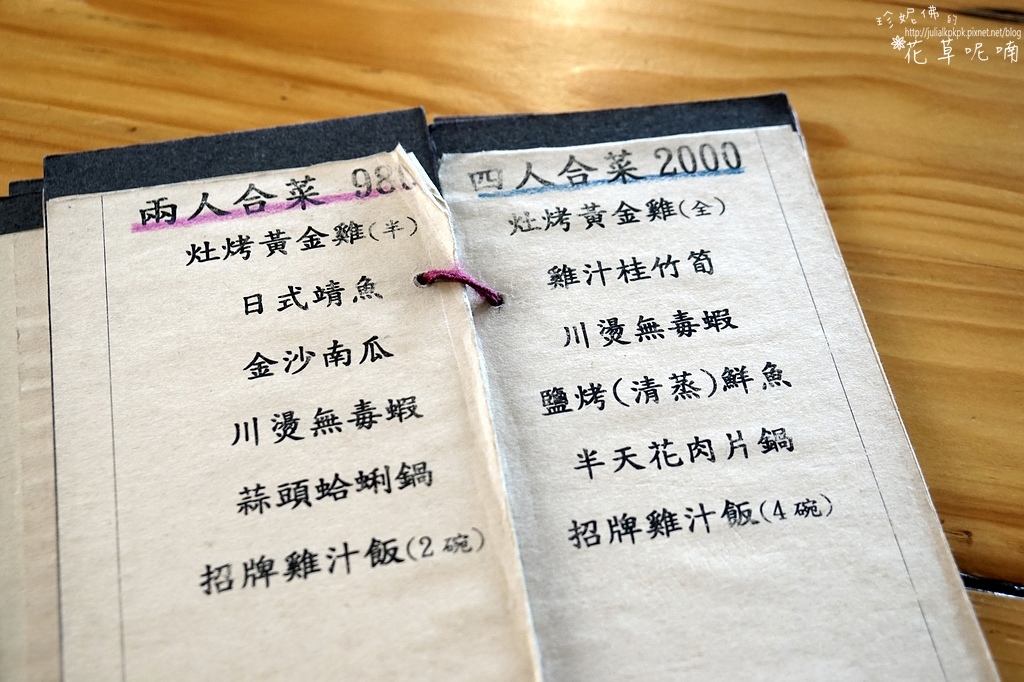 珍妮佛的
http://julialkpkpk.pixnet.net/blog
花草呢喃
兩人合菜 980
灶烤黃金雞(半)
日式鯖魚
金沙南瓜
川燙無毒蝦
蒜頭蛤蜊鍋
招牌雞汁飯(2碗)
四人合菜 2000
灶烤黃金雞(全)
雞汁桂竹筍
川燙無毒蝦
鹽烤(清蒸)鮮魚
半天花肉片鍋
招牌雞汁飯(4碗)